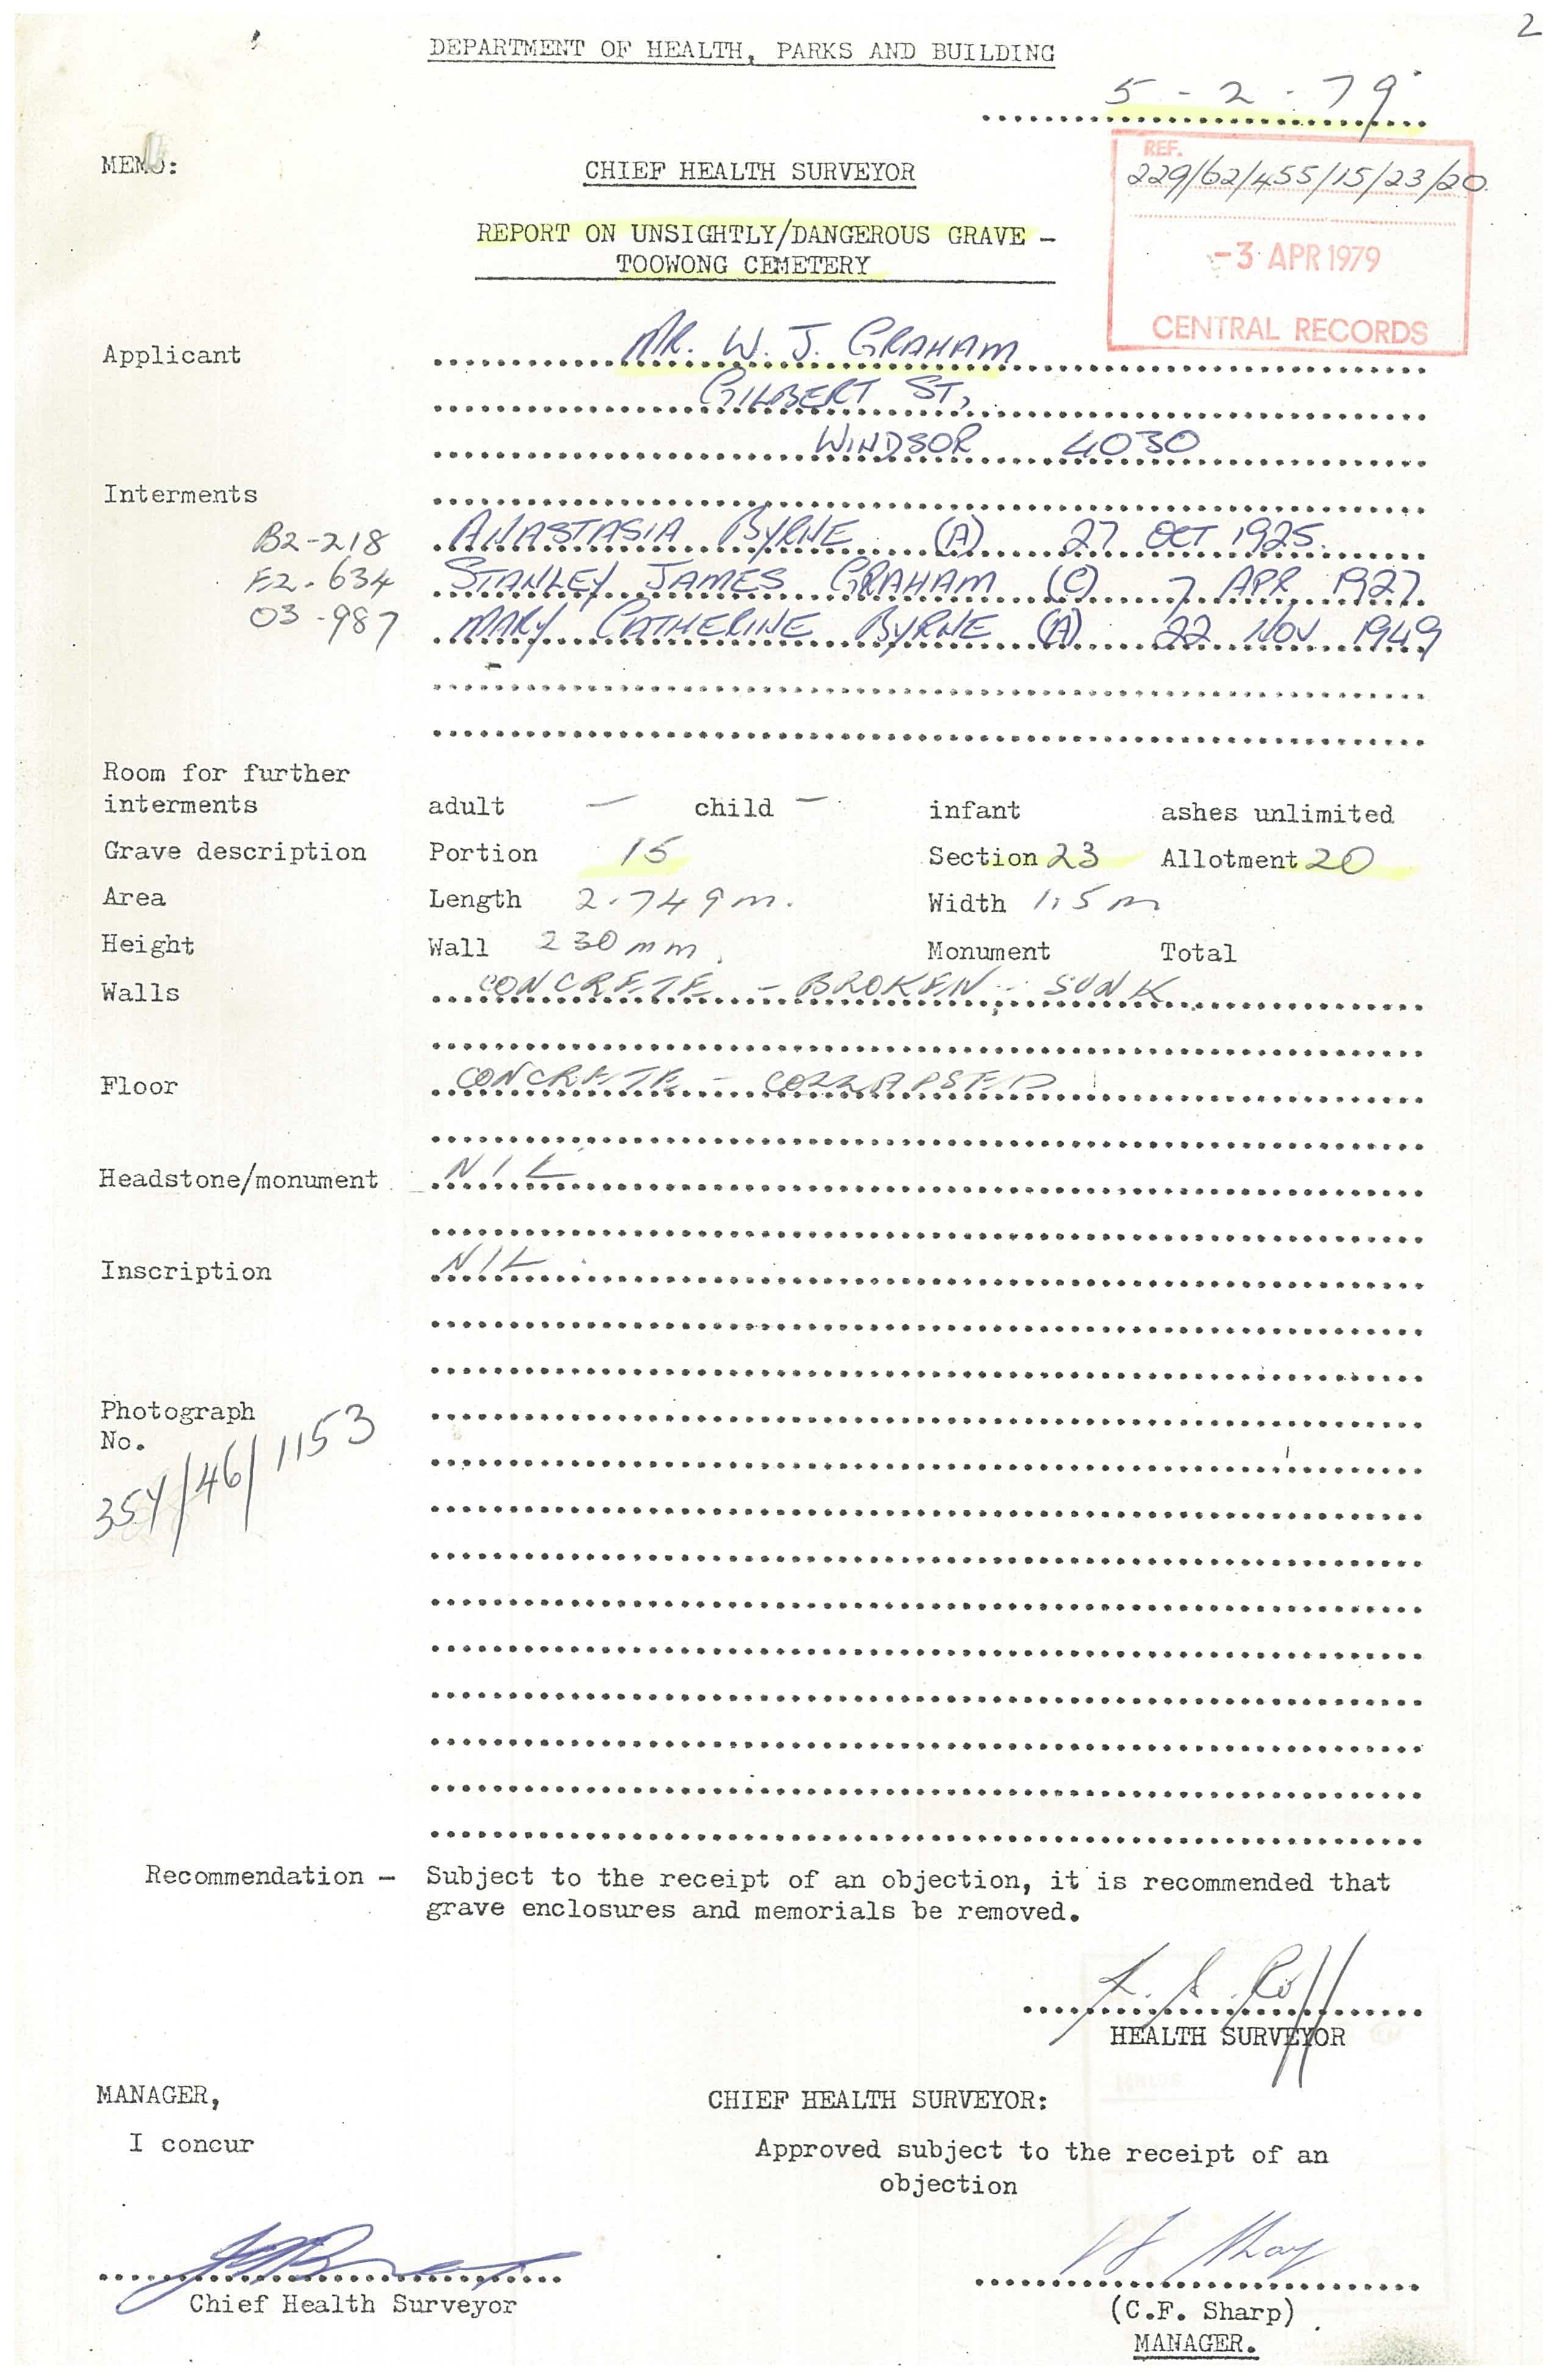 2
DEPARTMENT OF HEALTH, PARKS AND BUILDING
5-2-79
MEMO:
CHIEF HEALTH SURVEYOR
REF.
229/62/455/15/23/20
REPORT ON UNSIGHTLY/DANGEROUS GRAVE -
TOOWONG CEMETERY
-3 APR 1979
CENTRAL RECORDS
Applicant MR. W. J. GRAHAM
GILBERT ST,
WINDSOR 4030
Interments
B2-218 ANASTASIA BYRNE (A) 27 OCT 1925.
E2-634 STANLEY JAMES GRAHAM (C) 7 APR 1927
03-987 MARY CATHERINE BYRNE (A) 22 NOV 1949
Room for further
interments adult — child — infant ashes unlimited
Grave description Portion 15 Section 23 Allotment 20
Area Length 2.749m. Width 1.5m
Height Wall 230mm. Monument Total
Walls CONCRETE - BROKEN - SUNK
Floor CONCRETE - COLLAPSED
Headstone/monument NIL
Inscription NIL
Photograph
No.
354/46/1153
Recommendation - Subject to the receipt of an objection, it is recommended that
grave enclosures and memorials be removed.
HEALTH SURVEYOR
MANAGER, CHIEF HEALTH SURVEYOR:
I concur Approved subject to the receipt of an
objection
Chief Health Surveyor (C.F. Sharp)
MANAGER.